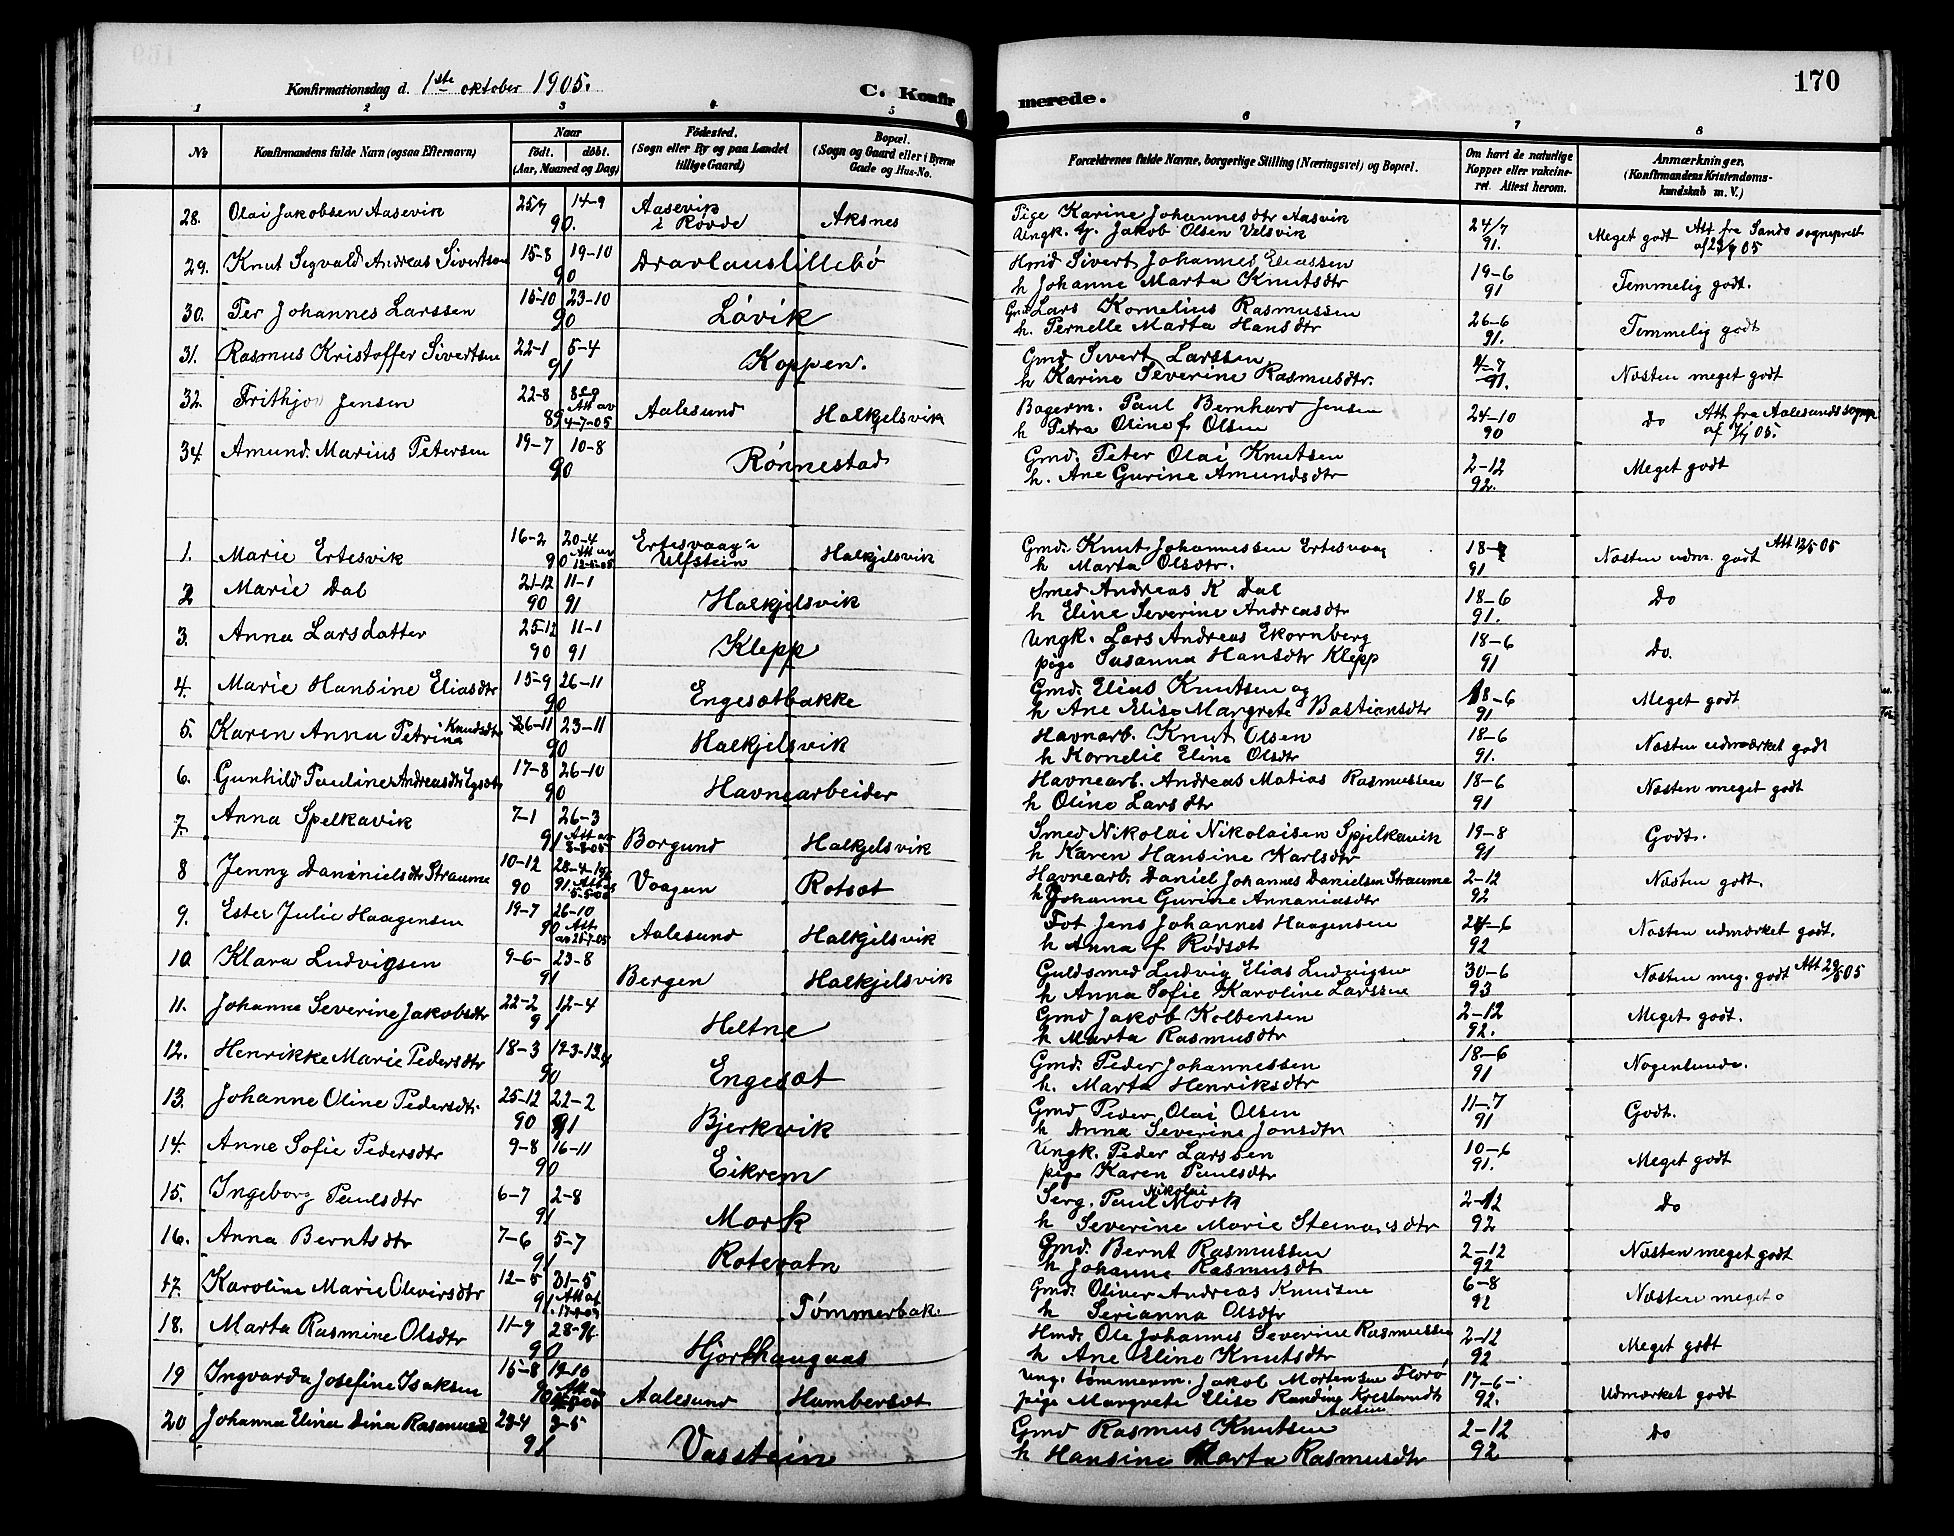 170
Konfirmationsdag d. 1ste oktober 1905.
C. Konfirmerede.
1 2 3 4 5 6 7 8
No
Konfirmandens fulde Navn (ogsaa Efternavn)
Naar
født. døbt.
(Aar, Maaned og Dag)
Fødested.
(Sogn eller By og paa Landet
tillige Gaard)
Bopæl.
(Sogn og Gaard eller i Byerne
Gade og Hus-No.
Forældrenes fulde Navne, borgerlige Stilling (Næringsvei) og Bopæl.
Om havt de naturlige
Kopper eller vakcine-
ret. Attest herom.
Anmærkninger.
(Konfirmandens Kristendoms-
kundskab m. V.)
28. Olai Jakobsen Aasevik 25/7 14-9 90. Aasevik i Rovde Aksnes Pige Karine Johannesdtr Aasvik Ungk. Jakob Olsen Velsvik 24/7 91. Meget godt Att fra Sands sogneprest
29. Knut Segvald Andreas Sivertsen 15-8 19-10 90 Dravlauslillebø Hmd Sivert Johannes Eliassen h Johanne Marta Knutsdtr 19-6 91 Temmelig godt.
30. Per Johannes Larssen 15-10 23-10 90 Løvik Gmd Lars Kornelius Rasmussen h. Pernelle Marta Hansdtr 26-6 91. Temmelig godt
31. Rasmus Kristoffer Sivertsen 22-1 5-4 91 Koppen. Gmd Sivert Larssen h Karine Severine Rasmusdtr. 4-7 91. Næsten meget godt
32. Frithjov Jensen 22-8 89 Att av 4-7-05 Aalesund Halkjelsvik Bagerm. Paul Bernhard Jensen h Petra Oline f. Olsen 24-10 90 do Att. fra Aalesunds sognep
34. Amund Marius Petersen 19-7 10-8 90 Rønnestad Gmd. Peter Olai Knutsen h. Ane Gurine Amundsdtr 2-12 92. Meget godt
1. Marie Ertesvik 16-2 20-4 90 Att av 12-5-05 Ertesvaag i Ulfstein Halkjelsvik Gmd. Knut Johannessen Ertesvaag h Marta Olsdtr. 18- 91 Næsten udm. godt Att 12/5 05
2 Marie Dal 21-12 90 11-1 91 Halkjelsvik Smed Andreas K Dal h Eline Severine Andreasdtr 18-6 91. Do
3. Anna Larsdatter 25-12 90 11-1 91 Klepp Ungk. Lars Andreas Ekornberg pige Susanna Hansdtr Klepp 18-6 91 Do.
4. Marie Hansine Eliasdtr 15-9 26-11 90 Engesætbakke Gmd. Elias Knutsen og h Ane Elise Margrete Bastiansdtr 18-6 91 Meget godt
5. Karen Anna Petrina Knudsdtr 26-11 23-11 90 Halkjelsvik Havnarb. Knut Olsen h Kornelie Eline Olsdtr 18-6 91. Næsten udmærket godt
6. Gunhild Pauline Andreasdtr 17-8 26-10 90 Havnearbeider Havnearb. Andreas Matias Rasmussen h Oline Larsdtr 18-6 91 Næsten meget godt
7. Anna Spelkavik 7-1 26-3 91 Att av 8-8-05 Borgund Halkjelsvik Smed Nikolai Nikolaisen Spjelkavik h Karen Hansine Karlsdtr 19-8 91 Godt.
8 Jenny Daninielsdtr Straume 10-12 90 91 Vaagen Rotsæt Havnearb. Daniel Johannes Danielsen Straume h Johanne Gurine Annaniasdtr 2-12 92 Næsten godt.
9. Ester Julie Haagensen 19-7 26-10 90 Att av 21-7-05 Aalesund Halkjelsvik Fot Jens Johannes Haagensen h Anna f. Rødsæt 24-6 92 Næsten udmærket godt.
10. Klara Ludvigsen 9-6- 23-8 91 Bergen Halkjelsvik Guldsmed Ludvig Elias Ludvigsen h Anna Sofie Karoline Larssen 30-6 93 Næsten meg. godt Att 29/5 05
11. Johanne Severine Jakobsdtr 22-2 12-4 91 Heltne Gmd Jakob Kolbensen h Marta Rasmusdtr 2-12 92. Meget godt.
12. Henrikke Marie Pedersdtr 18-3 90 Engesæt Gmd. Peder Johannessen h. Marta Henriksdtr 18-6 91 Nogenlunde.
13. Johanne Oline Pedersdtr. 25-12 90 22-2 91 Bjerkvik Gmd Peder Olai Olsen h Anna Severine Jonsdtr 11-7 91 Godt.
14. Anne Sofie Pedersdtr 9-8 16-11 90 Eikrem Ungk. Peder Larssen pige Karen Paulsdtr 10-6 91. Meget godt
15. Ingeborg Paulsdtr 6-7 2-8 91 Mork Serg. Paul Nikolai Mork h Severine Marie Steinarsdtr 2-12 92 Do
16. Anna Berntsdtr 7-6 5-7 91 Rotevatn Gmd. Bernt Rasmussen h Johanne Rasmusdt 2-12 92 Næsten meget godt
17. Karoline Marie Oliversdtr 12-5 31-5 91 Att af Tømmerbak. Gmd. Oliver Andreas Knutsen h Serianna Olsdtr 6-8 92 Næsten meget
18. Marta Rasmine Olsdtr 11-9 90 Hjorthaugaas Hmd. Ole Johannes Severine Rasmussen h Ane Eline Knutsdtr 2-12 92 Meget godt
19 Ingvarda Josefine Isaksen 15-8 19-10 90 Att av Aalesund Humbersæt Ung. tømmerm. Jakob Mortensen Florø pige Margrete Elise Randine Aasen 17-6- 92. Udmærket godt
20 Johanna Elina Dina Rasmusd 23-4 3-5 91 Vasstein Gmd Rasmus Knutsen h Hansine Marta Rasmusdtr 2-12 92 Do